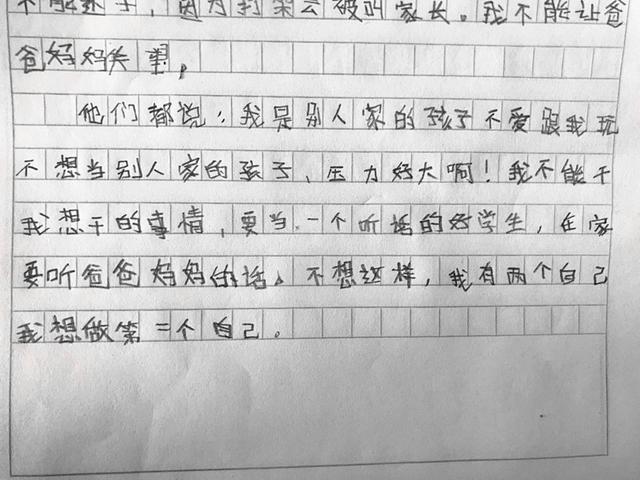 不能坏子，因为打架会被叫家长。我不能让爸
爸妈妈失望，
他们都说：我是别人家的孩子不爱跟我玩
不想当别人家的孩子，压力好大啊！我不能干
我想干的事情，要当一个听话的好学生，在家
要听爸爸妈妈的话。不想这样，我有两个自己
我想做第二个自己。